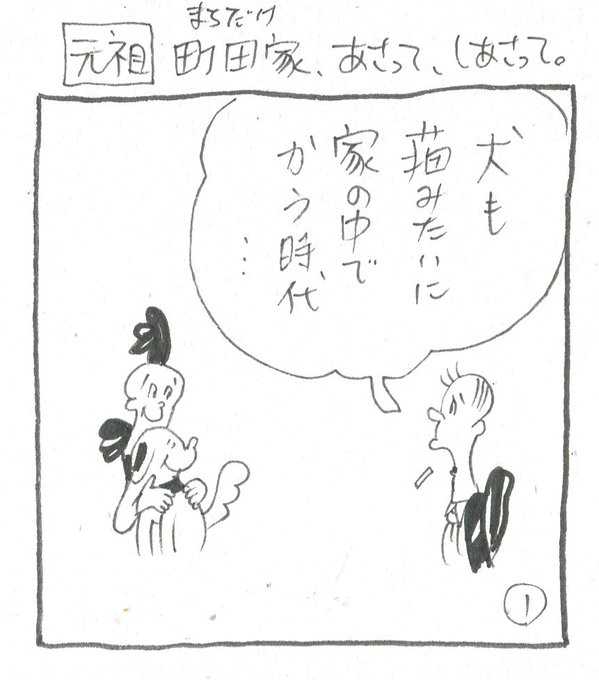 まちだけ
元祖 町田家、あさって、しあさって。
犬も
猫みたいに
家の中で
かう時代
…
1